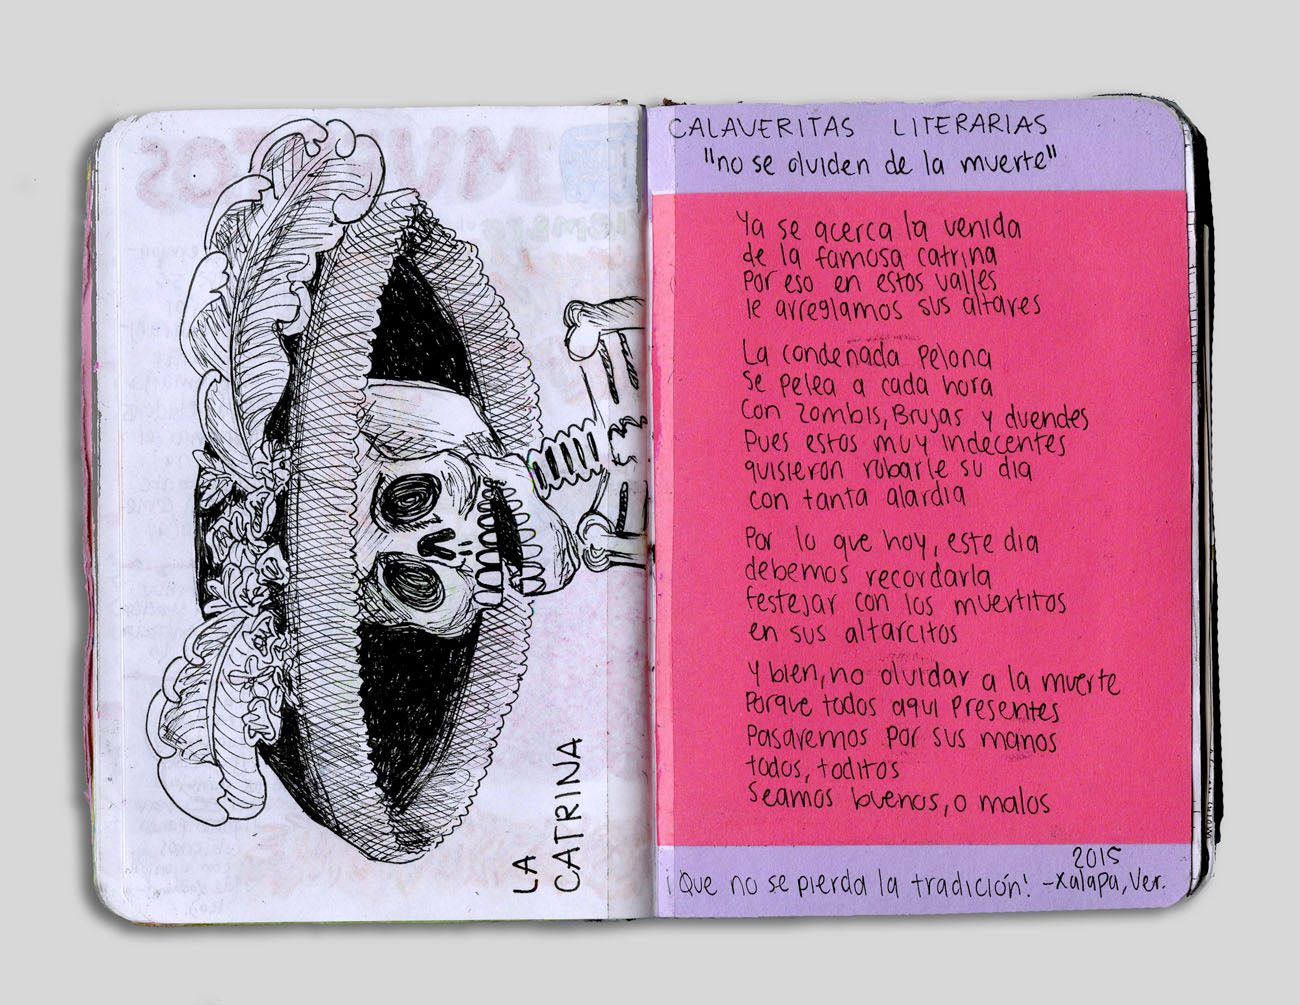 LA
CATRINA
CALAVERITAS LITERARIAS
"no se olviden de la muerte"
Ya se acerca la venida
de la famosa catrina
Por eso en estos valles
le arreglamos sus altares
La condenada Pelona
se pelea a cada hora
con zombis, Brujas y duendes
Pues estos muy indecentes
quisieron robarle su dia
con tanta alardia
Por lo que hoy, este dia
debemos recordarla
festejar con los muertitos
en sus altarcitos
Y bien, no olvidar a la muerte
Porque todos aqui presentes
Pasaremos por sus manos
todos, toditos
seamos buenos, o malos
2015
¡Que no se pierda la tradición! -Xalapa, Ver.